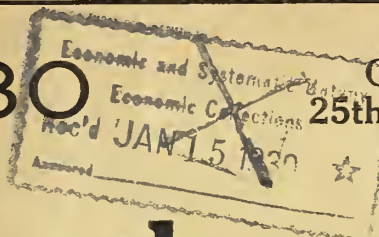 Economic and Systematic Botany
Economic Collections
Rec'd JAN 15 1930
25th
Answered